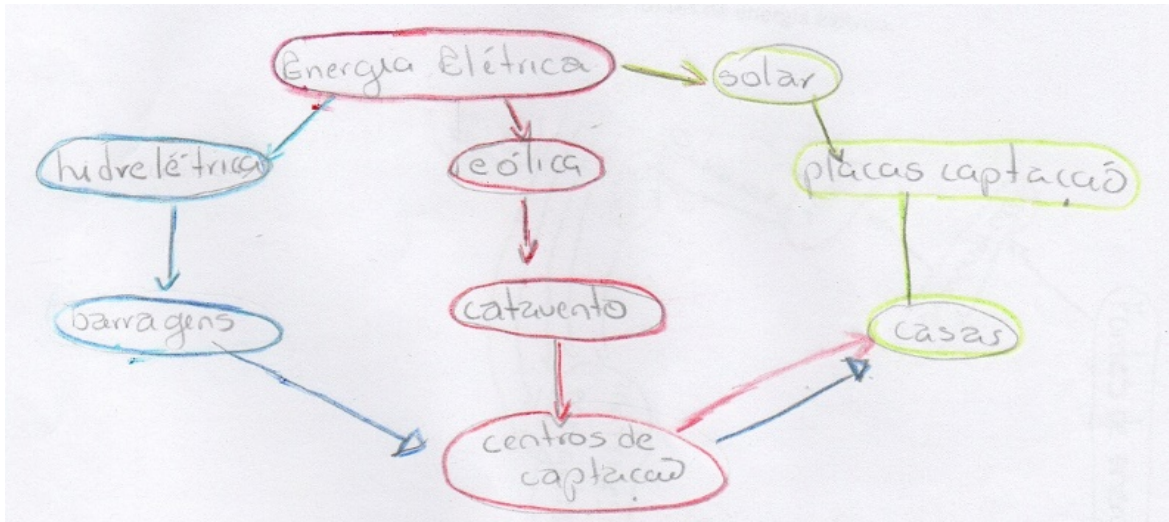 Energia Elétrica
solar
hidrelétrica
eólica
placas captação
barragens
catavento
casas
centros de
captação